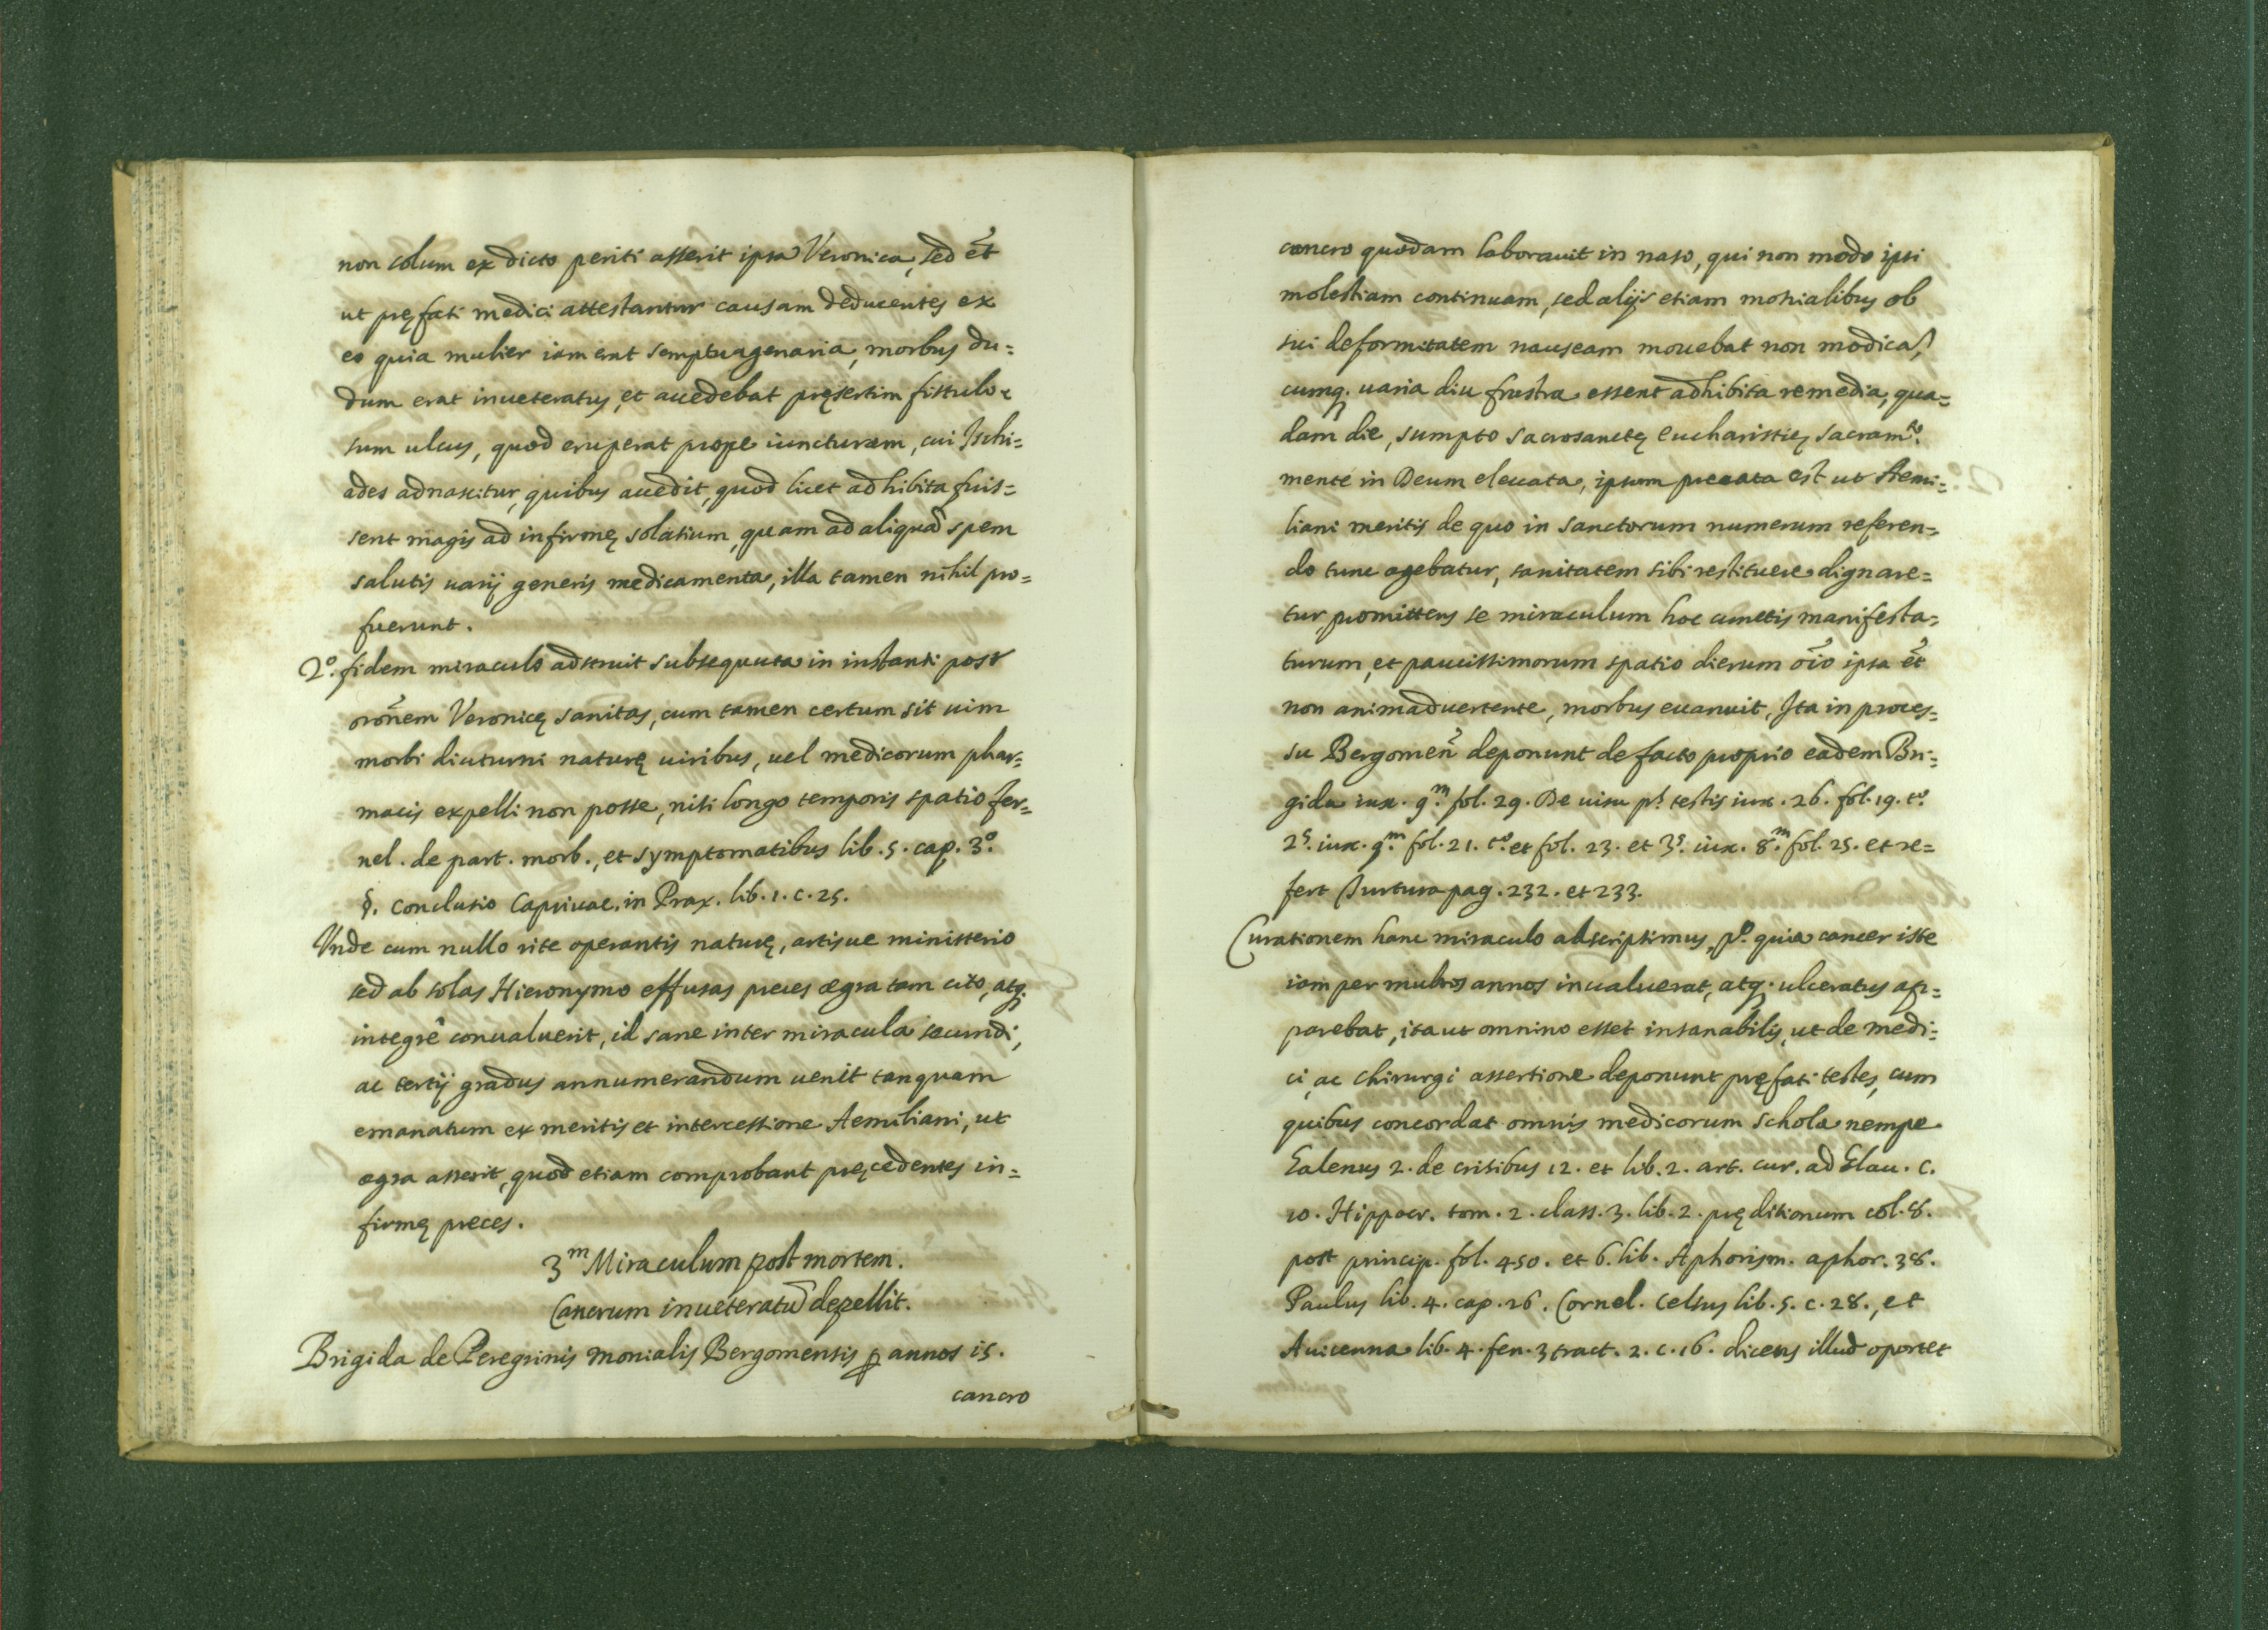 non solum ex dicto periti asserit ipsa Veronica, sed et̃
ut pręfati medici attestantur causam deducentes ex
eo quia mulier iam erat semptuagenaria, morbus du=
dum erat inueteratus, et accedebat pręsertim fistulo=
sum ulcus, quod eruperat prope iuncturam, cui Ischi=
ades adnascitur, quibus accedit, quod licet adhibita fuis=
sent magis ad infirmę solatium, quam ad aliquã spem
salutis uarij generis medicamenta, illa tamen nihil pro=
fuerunt.
2.º fidem miraculo adstruit subsequuta in instanti post
orõnem Veronicę sanitas, cum tamen certum sit uim
morbi diuturni naturę uiribus, uel medicorum phar=
macis expelli non posse, nisi longo temporis spatio fer=
nel. de part. morb., et symptomatibus lib. 5. cap. 3.º
§. conclusio Capiuac. in Prax. lib. 1. c. 25.
Vnde cum nullo rite operantis naturę, artisue ministerio
sed ab solas Hieronymo effusas preces ægra tam cito, atq.
integrê conualuerit, id sane inter miracula secundi,
ac tertij gradus annumerandum uenit tanquam
emanatum ex meritis et intercessione Aemiliani, ut
ægra asserit, quod etiam comprobant pręcedentes in=
firmę preces.
3.m Miraculum post mortem.
Cancrum inueteratũ depellit.
Brigida de Peregrinis monialis Bergomensis ꝑ annos 15.
cancro
cancro quodam laborauit in naso, qui non modo ipsi
molestiam continuam, sed alijs etiam monialibus ob
sui deformitatem nauseam mouebat non modica,
cumq. uaria diu frustra essent adhibita remedia, qua=
dam die, sumpto sacrosanctę eucharistię sacram.to
mente in Deum eleuata, ipsum precata est ut Aemi=
liani meritis de quo in sanctorum numerum referen=
do tunc agebatur, sanitatem sibi restituere dignare=
tur, promittens se miraculum hoc cunctis manifesta=
turum, et paucissimorum spatio dierum oĩo ipsa et̃
non animaduertente, morbus euanuit, Ita in proces=
su Bergomeñ deponunt de facto proprio eadem Bri=
gida iux. 9.m fol. 29. De uisu p.s testis iux. 26. fol. 19. t.º
2.s iux. 9.m fol. 21. t.º et fol. 23. et 3.s iux. 8.m fol. 25. et re=
fert Turtura pag. 232. et 233.
Curationem hanc miraculo adscripsimus, p.º quia cancer iste
iam per multos annos inualuerat, atq. ulceratus ap=
parebat, ita ut omnino esset insanabilis, ut de medi=
ci, ac chirurgi assertione deponunt pręfati testes, cum
quibus concordat omnis medicorum schola nempe
Galenus 2. de crisibus 12. et lib. 2. art. cur. ad Glau. c.
10. Hippocr. tom. 2. class. 3. lib. 2. pręditionum col. 8.
post princip. fol. 450. et 6. lib. Aphorism. aphor. 38.
Paulus lib. 4. cap. 26. Cornel. Celsus lib. 5. c. 28., et
Auicenna lib. 4. fen. 3 tract. 2. c. 16. dicens illud oportet